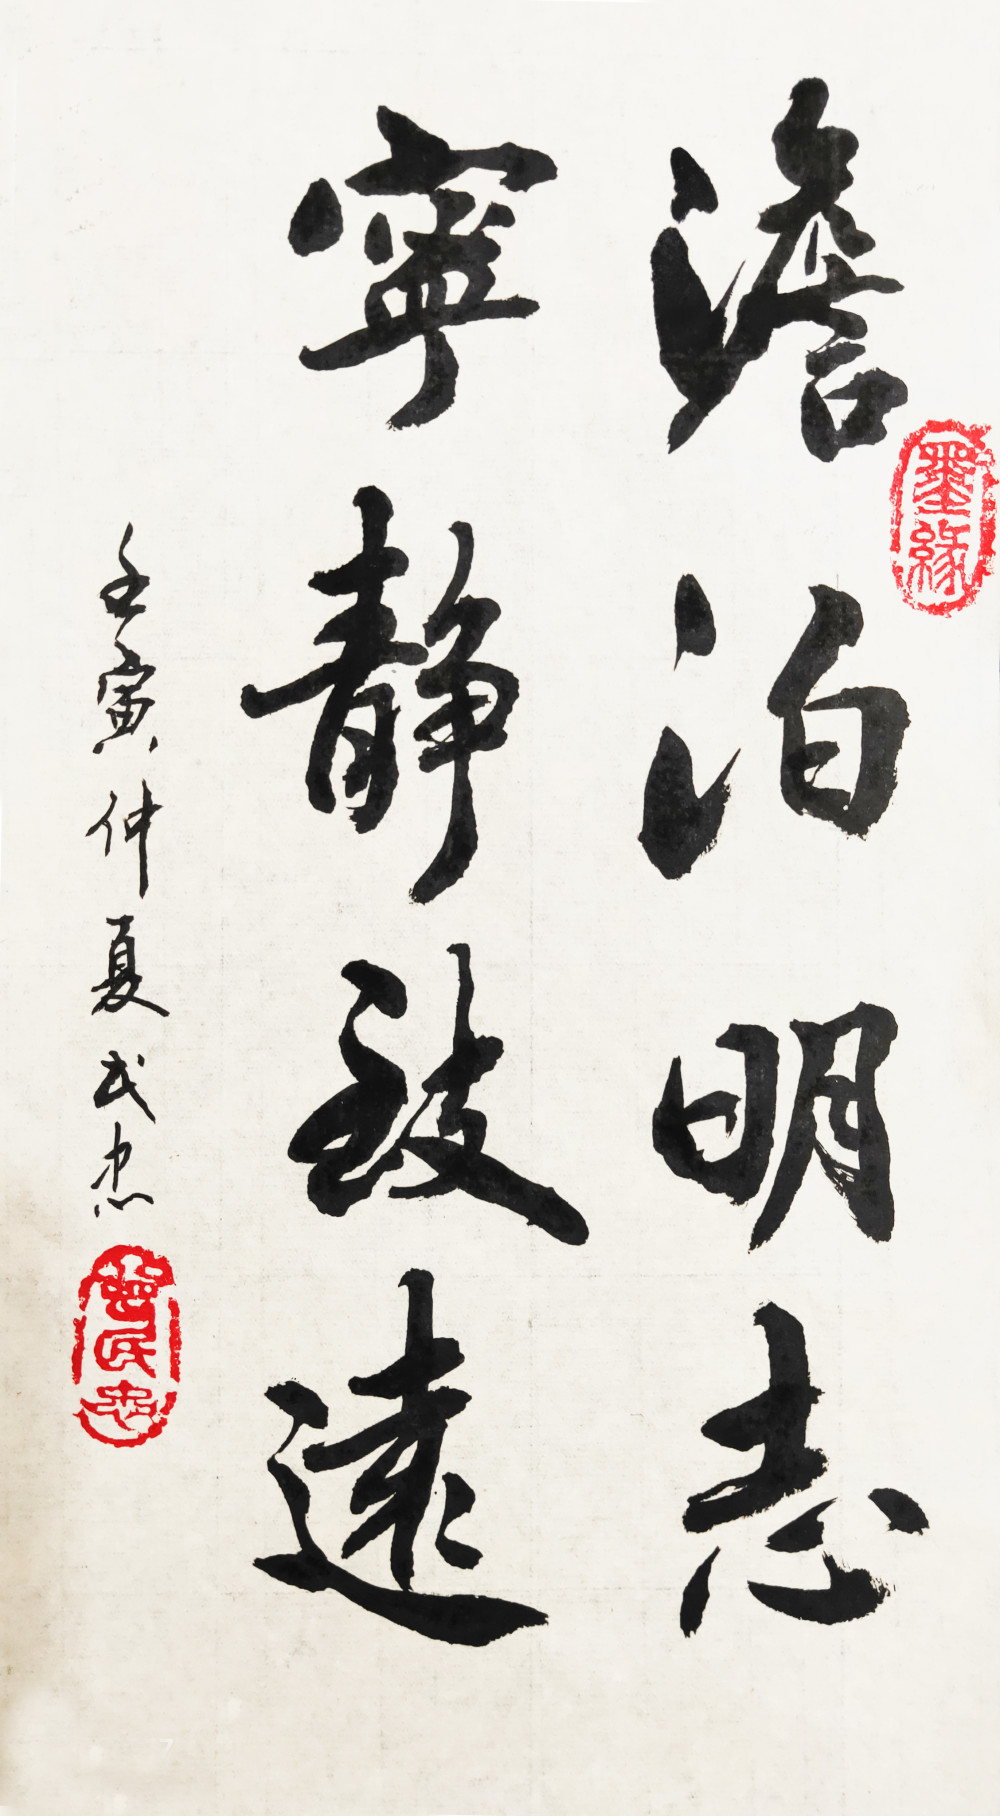 澹泊明志
墨緣
寧静致遠
壬寅仲夏民忠
民忠